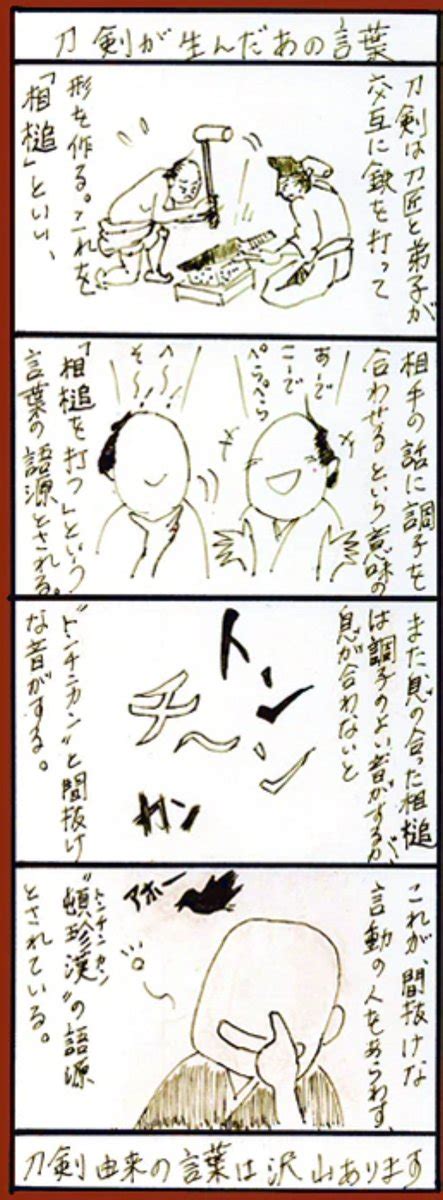 刀剣が生んだあの言葉
刀剣は刀匠と弟子が
交互に鉄を打って
形を作る。これを
「相槌」といい、
相手の話に調子を
合わせるという意味の
あーで
こーで
ぺらぺら
へ〜!
そ〜!
「相槌を打つ」という
言葉の語源とされる。
また、息の合った相槌
は調子のよい音がするが、
息が合わないと
トン
チ〜ン
カン
"トンチンカン"と間抜け
な音がする。
これが、間抜けな
言動の人をあらわす
アホー
"頓珍漢"の語源
トンチンカン
とされている。
刀剣由来の言葉は沢山あります